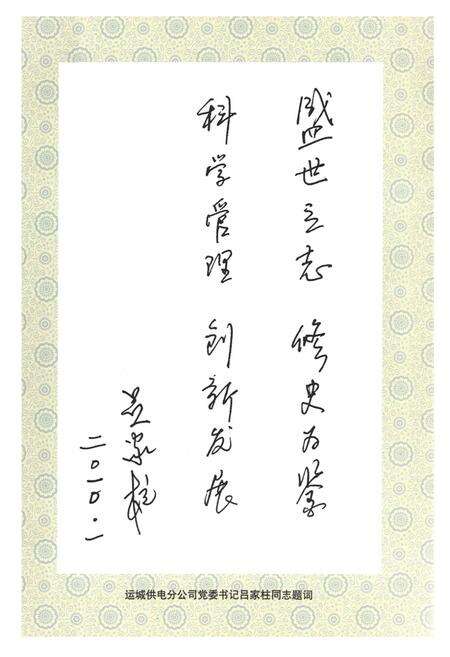 盛世立志 修史为鉴
科学管理 创新发展
吕家柱
二〇一〇·一
运城供电分公司党委书记吕家柱同志题词